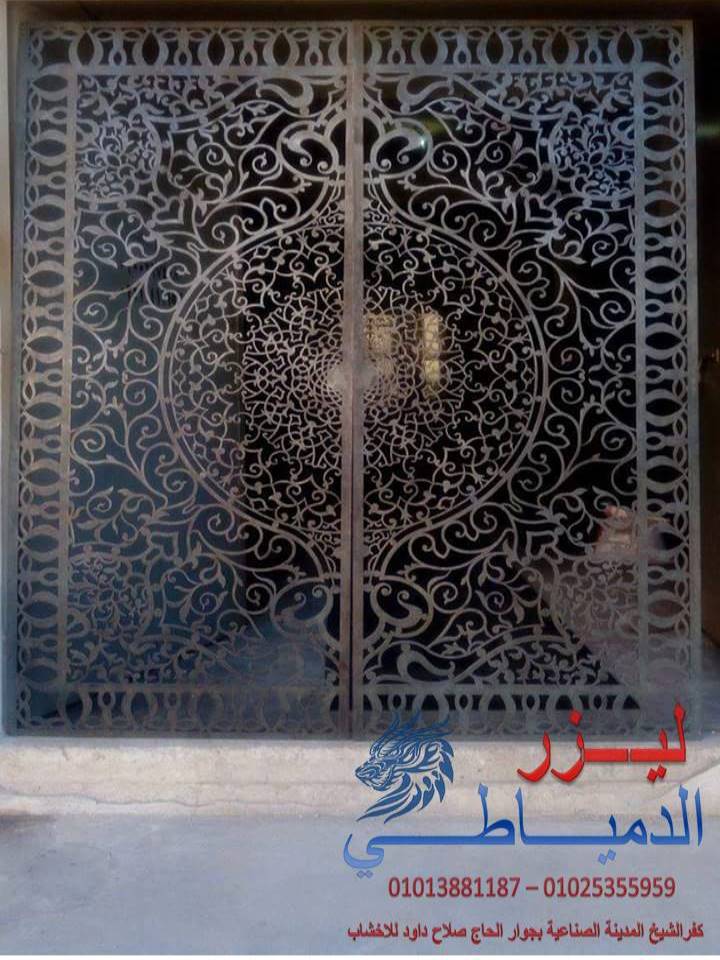 ليـــزر
الدميـــاطـــي
01013881187 – 01025355959
كفرالشيخ المدينة الصناعية بجوار الحاج صلاح داود للاخشاب